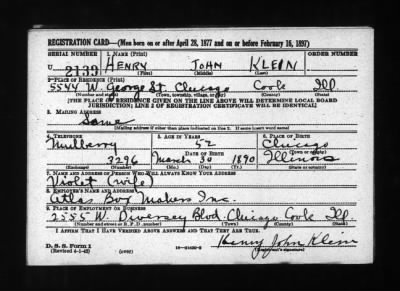 REGISTRATION CARD—(Men born on or after April 28, 1877 and on or before February 16, 1897)
SERIAL NUMBER 1. NAME (Print) ORDER NUMBER
U 2139 HENRY JOHN KLEIN
(First) (Middle) (Last)
2. PLACE OF RESIDENCE (Print)
5544 W. George St. Chicago Cook Ill.
(Number and street) (Town, township, village, or city) (County) (State)
[THE PLACE OF RESIDENCE GIVEN ON THE LINE ABOVE WILL DETERMINE LOCAL BOARD
JURISDICTION; LINE 2 OF REGISTRATION CERTIFICATE WILL BE IDENTICAL]
3. MAILING ADDRESS
Same
[Mailing address if other than place indicated on line 2. If same insert word same]
4. TELEPHONE 5. AGE IN YEARS 6. PLACE OF BIRTH
Mulberry 52 Chicago
DATE OF BIRTH (Town or county)
3296 March 30 1890 Illinois
(Exchange) (Number) (Mo.) (Day) (Yr.) (State or country)
7. NAME AND ADDRESS OF PERSON WHO WILL ALWAYS KNOW YOUR ADDRESS
Violet (wife)
8. EMPLOYER'S NAME AND ADDRESS
Atlas Box Makers Inc.
9. PLACE OF EMPLOYMENT OR BUSINESS
2555 W. Diversey Blvd. Chicago Cook Ill.
(Number and street or R. F. D. number) (Town) (County) (State)
I AFFIRM THAT I HAVE VERIFIED ABOVE ANSWERS AND THAT THEY ARE TRUE.
D. S. S. Form 1
(Revised 4-1-42) (over) Henry John Klein
(Registrant's signature)